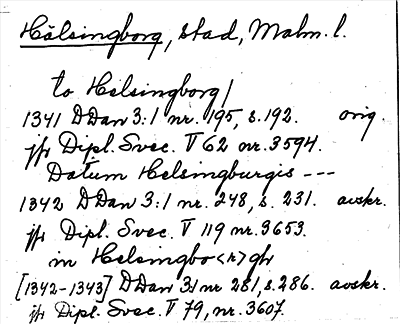 Hälsingborg, stad, Malm. l.
to Helsingborg/
1341 DDan 3:1 nr. 195, s. 192. orig.
jfr Dipl. Svec. V 62 nr. 3594.
Datum Helsingburgis ---
1342 DDan 3:1 nr. 248, s. 231. avskr.
jfr Dipl. Svec. V 119 nr. 3653.
in Helsingbo<r>gh
[1342-1343] DDan 3:1 nr 281, s. 286. avskr.
jfr Dipl. Svec. V 79, nr. 3607.